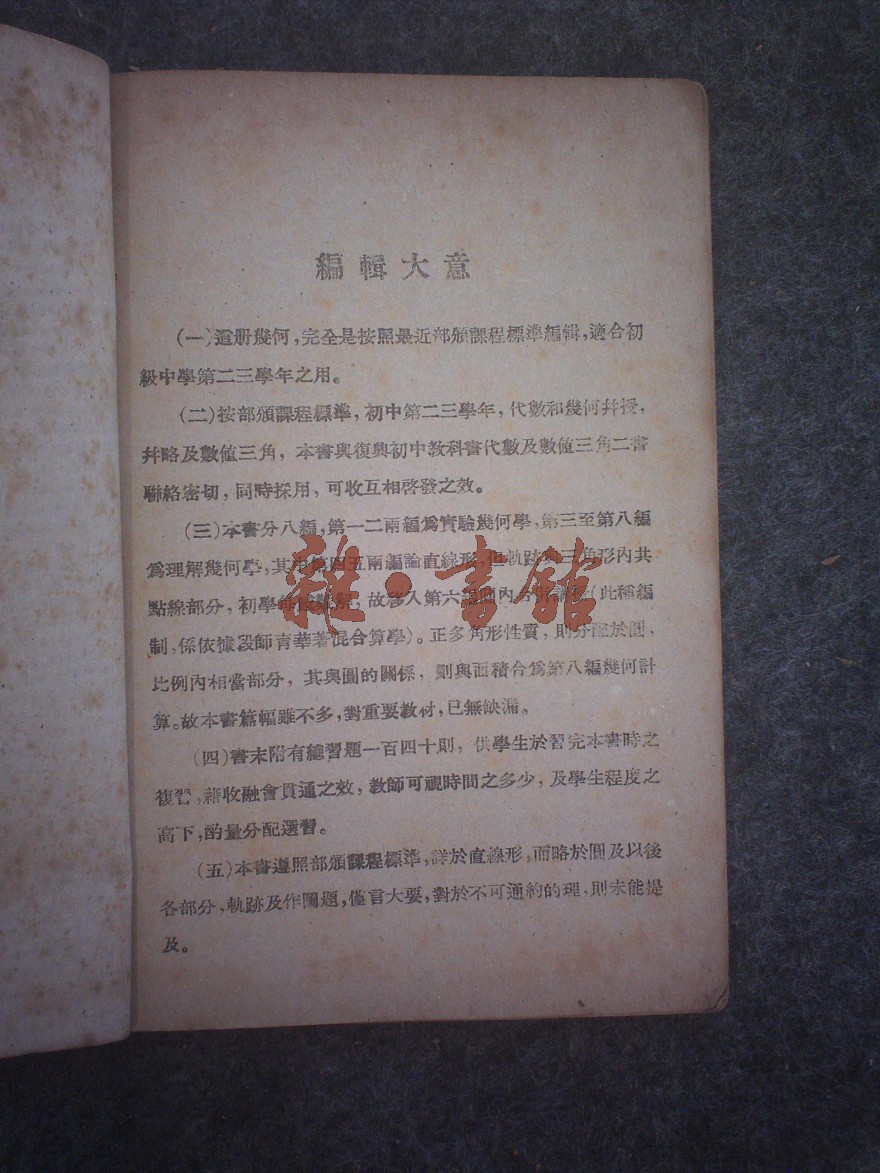 編輯大意
(一)這册幾何,完全是按照最近部頒課程標準編輯,適合初
級中學第二三學年之用。
(二)按部頒課程標準,初中第二三學年,代數和幾何幷授,
幷略及數值三角,本書與復興初中教科書代數及數值三角二書
聯絡密切,同時採用,可收互相啓發之效。
(三)本書分八編,第一二兩編爲實驗幾何學,第三至第八編
爲理解幾何學,其中第四五兩編論直線形,但軌跡與三角形內共
點線部分,初學每感難解,故移入第六編圓內合併講授(此種編
制,係依據段師育華著混合算學)。正多角形性質,則分配於圓,
比例內相當部分,其與圓的關係,則與面積合爲第八編幾何計
算。故本書篇幅雖不多,對重要教材,已無缺漏。
(四)書末附有總習題一百四十則,供學生於習完本書時之
復習,藉收融會貫通之效,教師可視時間之多少,及學生程度之
高下,酌量分配選習。
(五)本書遵照部頒課程標準,詳於直線形,而略於圓及以後
各部分,軌跡及作圖題,僅言大要,對於不可通約的理,則未能提
及。
雜·書館